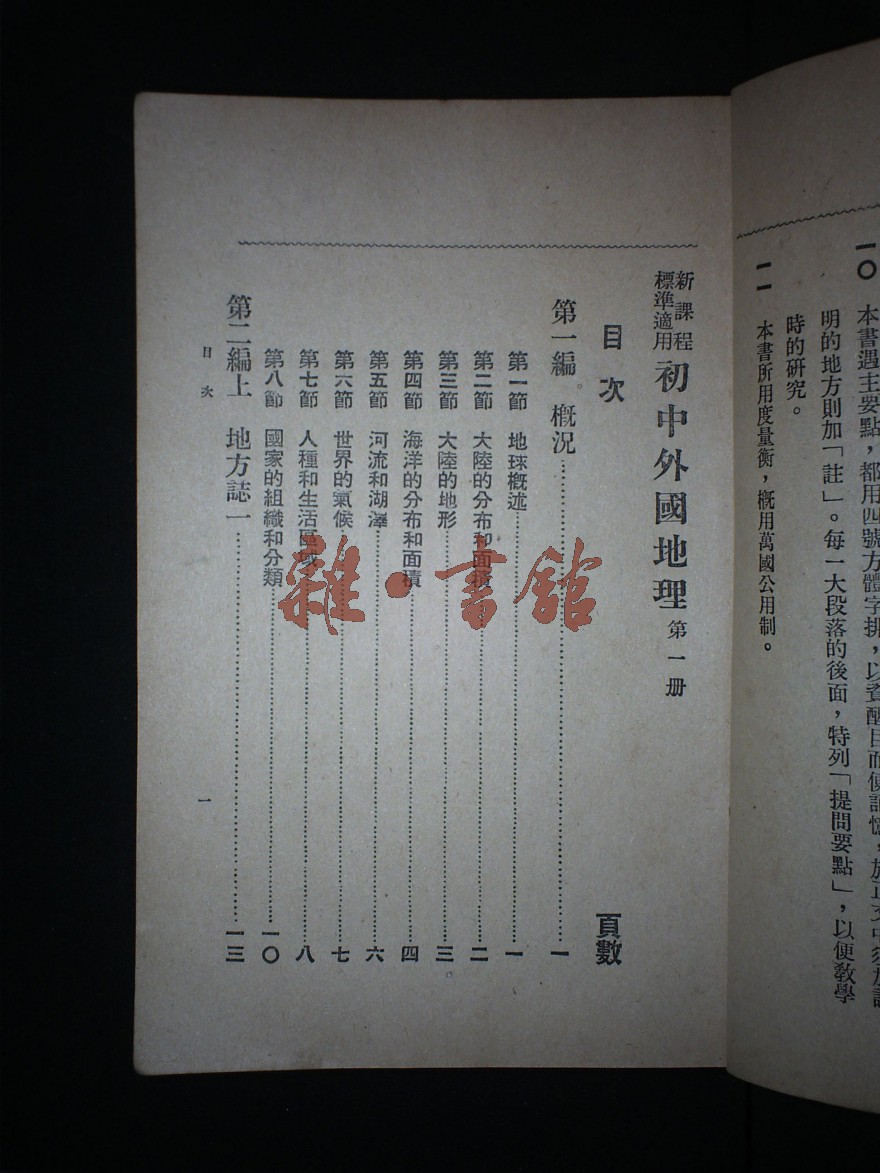 一〇 本書遇主要點，都用四號方體字排，以資醒目而便記憶，於正文中須加說
明的地方則加「註」。每一大段落的後面，特列「提問要點」，以便教學
時的研究。
一一 本書所用度量衡，概用萬國公用制。
新課程
標準適用
初中外國地理 第一册
目次 頁數
第一編 概況……一
第一節 地球概述……一
第二節 大陸的分布和面積……二
第三節 大陸的地形……三
第四節 海洋的分布和面積……四
第五節 河流和湖澤……六
第六節 世界的氣候……七
第七節 人種和生活區域……八
第八節 國家的組織和分類……一〇
第二編上 地方誌一……一三
目次
一
雜·書館